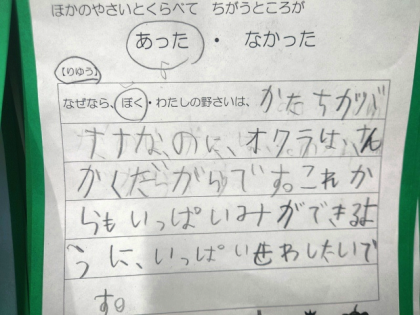 ほかのやさいとくらべて ちがうところが
あった ・ なかった
【りゆう】
なぜなら、ぼく・わたしの野さいは、かたちがツバ
ナナなのに、オクラは、さん
かくだからです。これか
らもいっぱいみナができるよ
うに、いっぱいせわしたいで
す。